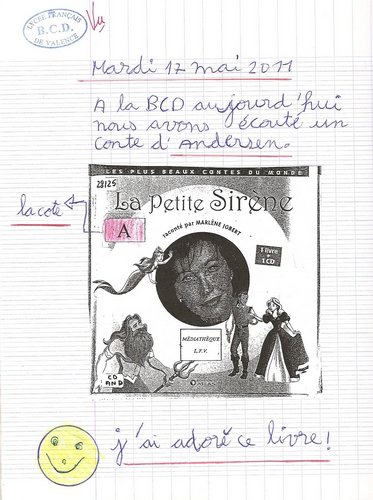 LYCÉE FRANÇAIS
B.C.D.
DE VALENCE
Vu
Mardi 17 mai 2011
A la BCD aujourd'hui
nous avons écouté un
conte d'Andersen.
LES PLUS BEAUX CONTES DU MONDE
28125
La Petite Sirène
la cote
A
raconté par MARLÈNE JOBERT
1 livre
+
1 CD
MÉDIATHÈQUE
L.F.V.
CD
AND
j'ai adoré ce livre!